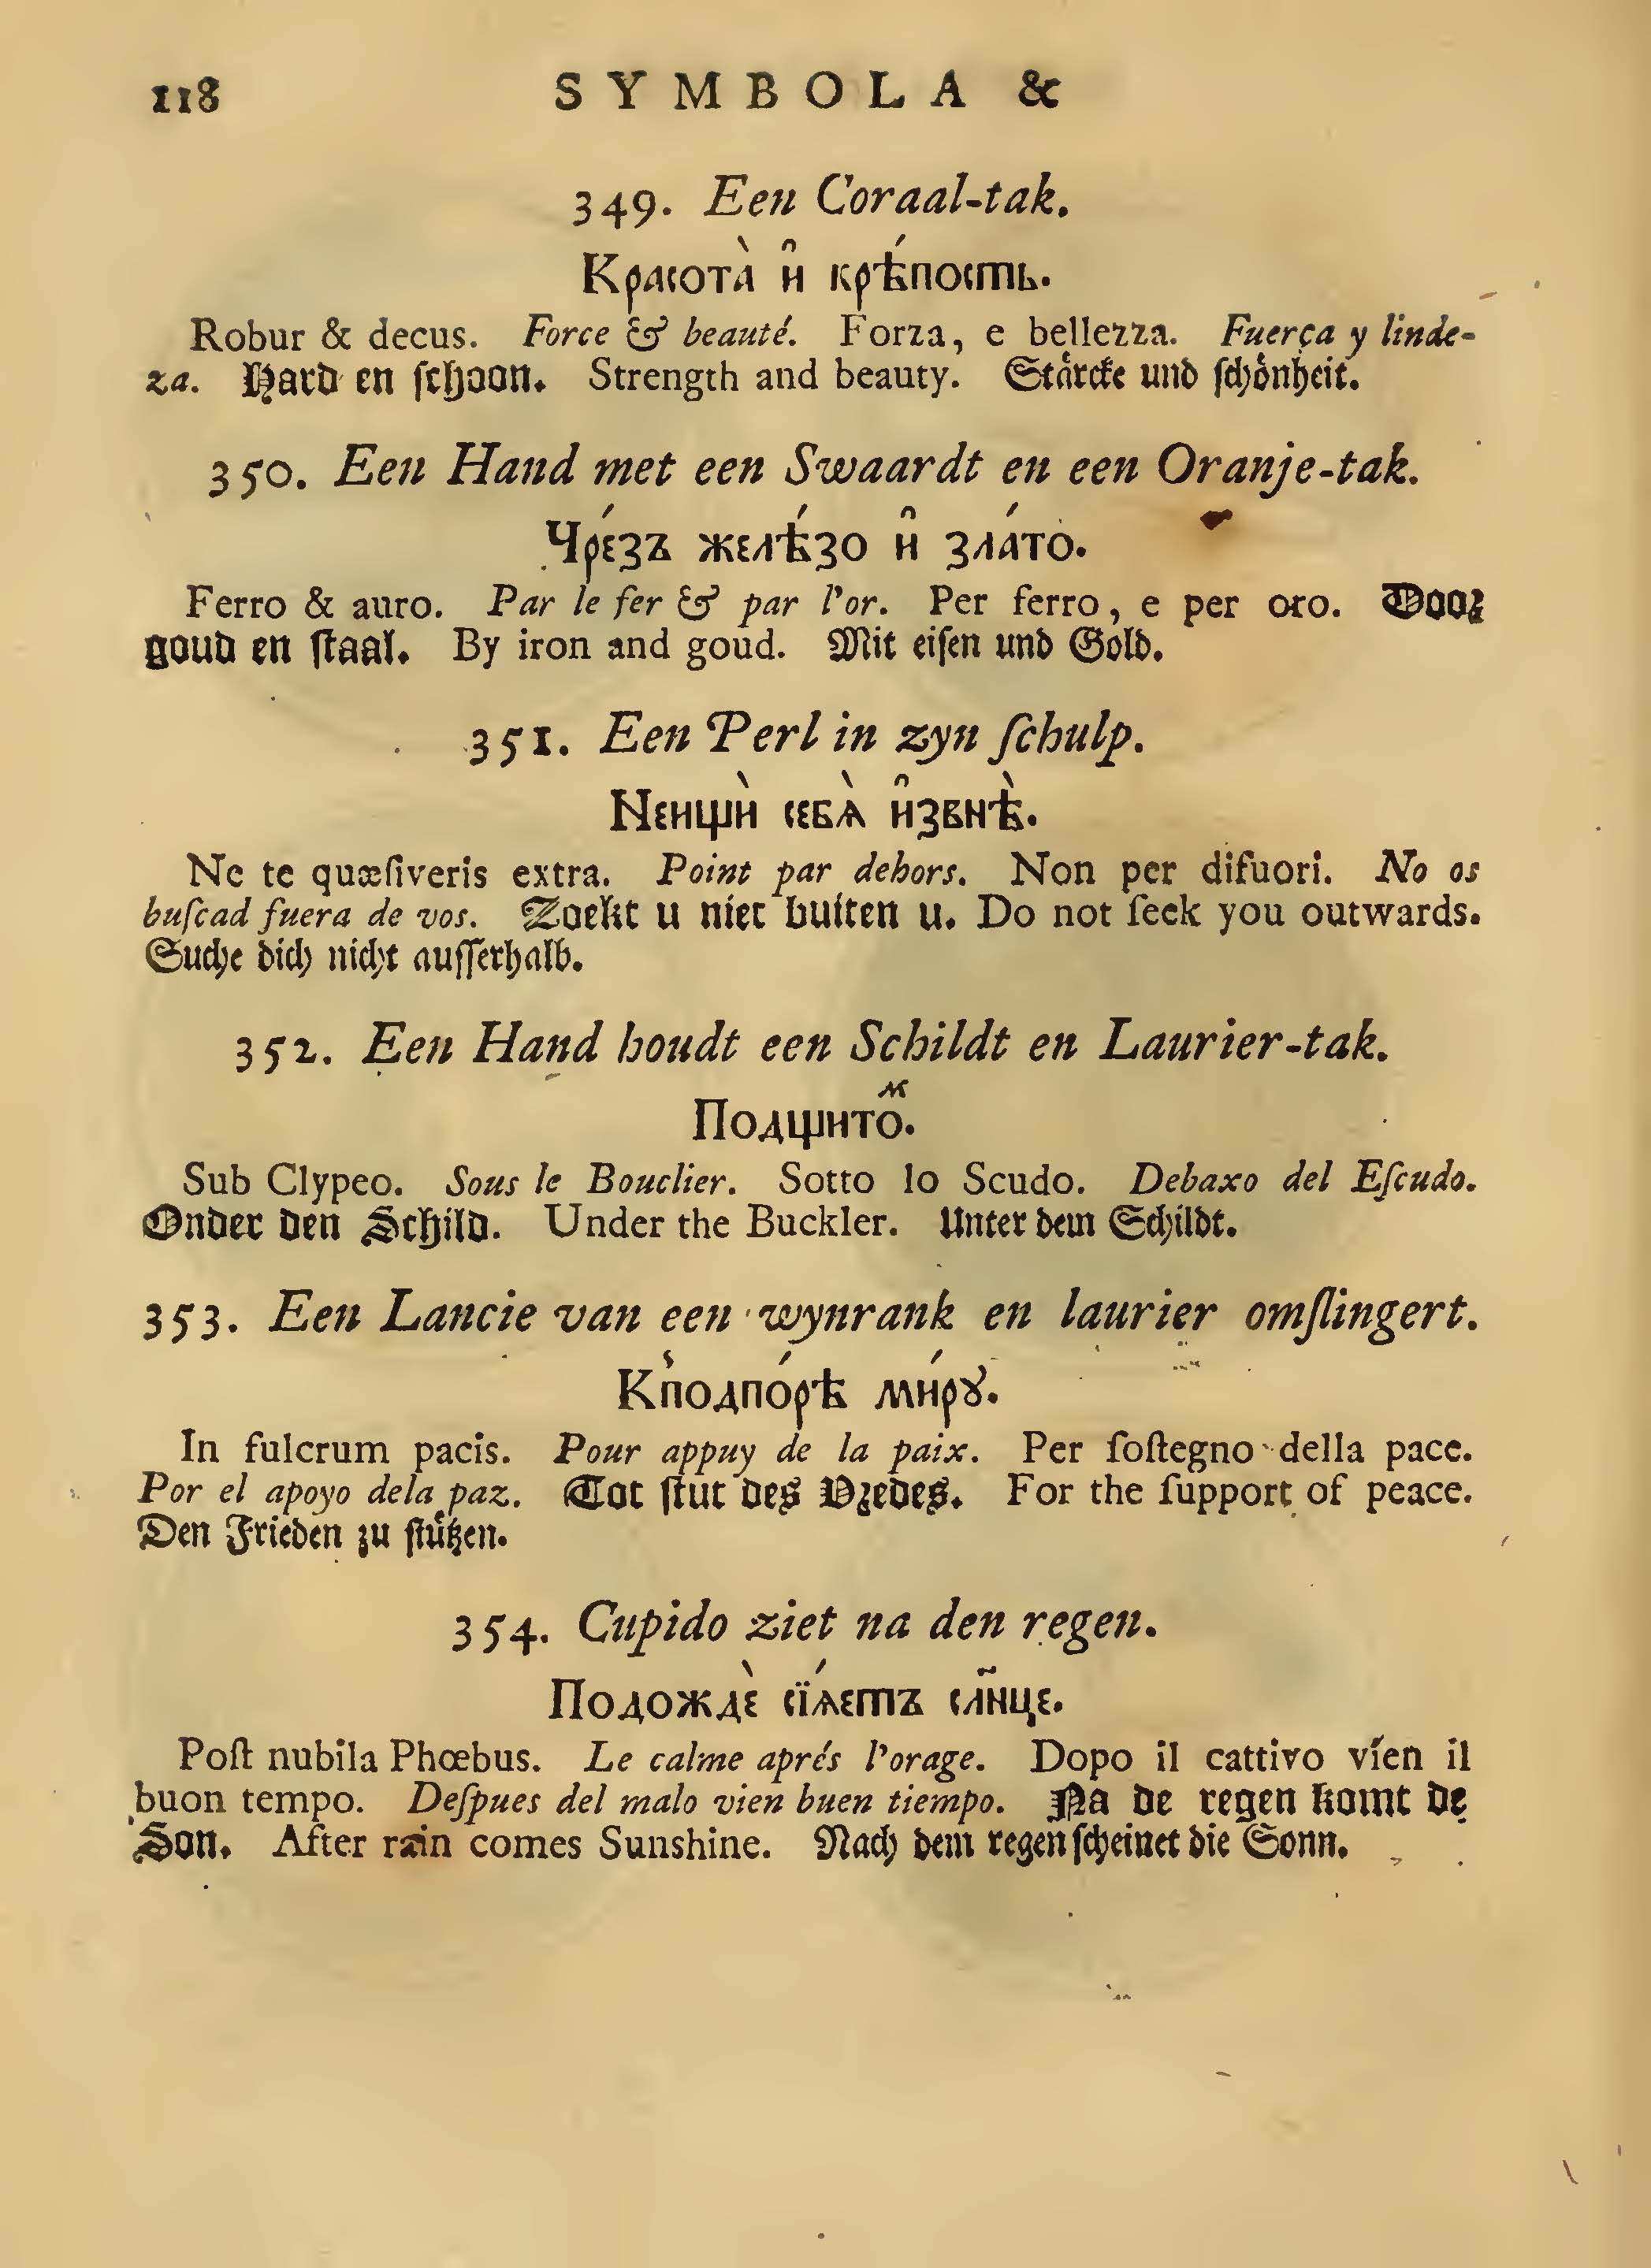 118 SYMBOLA &
349. Een Coraal-tak.
Красота̀ и҆̑ крѣ́пость.
Robur & decus. Force & beauté. Forza, e bellezza. Fuerça y linde-
za. Hard en ſchoon. Strength and beauty. Stärcke und ſchönheit.
350. Een Hand met een Swaardt en een Oranje-tak.
Чрéзъ желѣ́зо и̑ зла́то.
Ferro & auro. Par le fer & par l'or. Per ferro, e per oro. Door
goud en ſtaal. By iron and goud. Mit eiſen und Gold.
351. Een Perl in zyn ſchulp.
Неищѝ себѧ̀ и̑звнѣ̀.
Ne te quæſiveris extra. Point par dehors. Non per difuori. No os
buſcad fuera de vos. Zoekt u niet buiten u. Do not ſeek you outwards.
Suche dich nicht auſſerhalb.
352. Een Hand houdt een Schildt en Laurier-tak.
Подщитоⷨ.
Sub Clypeo. Sous le Bouclier. Sotto lo Scudo. Debaxo del Eſcudo.
Onder den Schild. Under the Buckler. Unter dem Schildt.
353. Een Lancie van een wynrank en laurier omſlingert.
К̾подпо́рѣ ми́рꙋ.
In fulcrum pacis. Pour appuy de la paix. Per ſoſtegno della pace.
Por el apoyo dela paz. Tot ſtut des Vredes. For the ſupport of peace.
Den Frieden zu ſtützen.
354. Cupido ziet na den regen.
Подождѐ сїѧ́етъ сл҃нце.
Poſt nubila Phœbus. Le calme aprés l'orage. Dopo il cattivo víen il
buon tempo. Deſpues del malo vien buen tiempo. Na de regen komt de
Son. After rain comes Sunshine. Nach dem regen ſcheinet die Sonn.